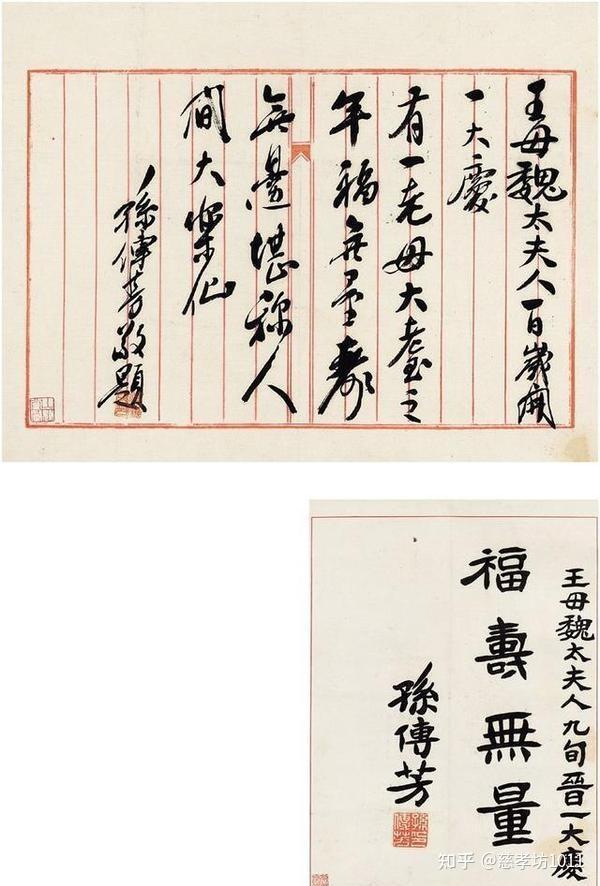 王母魏太夫人一百歲開
一大慶
有一老母大耋之
年福無量壽
無邊堪稱人
間大樂仙
孫傳芳敬題
王母魏太夫人九旬晉一大慶
福壽無量
孫傳芳
知乎 @慈孝坊1011